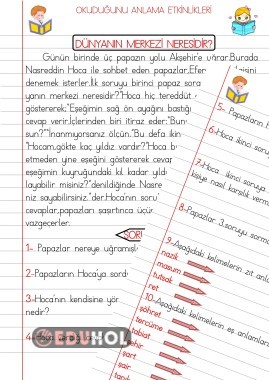 OKUDUĞUNU ANLAMA ETKİNLİKLERİ
DÜNYANIN MERKEZİ NERESİDİR?
Günün birinde üç papazın yolu Akşehir'e uğrar.Burada
Nasreddin Hoca ile sohbet eden papazlar,Efer
denemek isterler.İlk soruyu birinci papaz sora
yanın merkezi neresidir?"Hoca hiç tereddüt
göstererek;"Eşeğimin sağ ön ayağını bastığı
cevap verir.İçlerinden biri itiraz eder:"Bun
sun?""İnanmıyorsanız ölçün."Bu defa ikin
"Hocam,gökte kaç yıldız vardır?"Hoca b
etmeden yine eşeğini göstererek cevap
eşeğimin kuyruğundaki kıl kadar yıldı
layabilir misiniz?"denildiğinde Nasre
niz sayabilirsiniz."der.Hoca'nın soru
cevaplar,papazları şaşırtınca üçün
vazgeçerler.
SOR
1- Papazlar nereye uğramış
2-Papazların Hoca'ya sord
3-Hoca'nın kendisine yör
nedir?
4-
EDUHOL
5- Papazların
6-Hoca ikinci soruy
7-Hoca ikinci
kişiye nasıl karşılık verm
8-Papazlar 3.soruyu sorma
9-Aşağıdaki kelimelerin zıt anla
nazik
masum
tutsak
ret
10-Aşağıdaki kelimelerin eş anlamları
şöhret
tercüme
tabiat
şehir
şart
şair